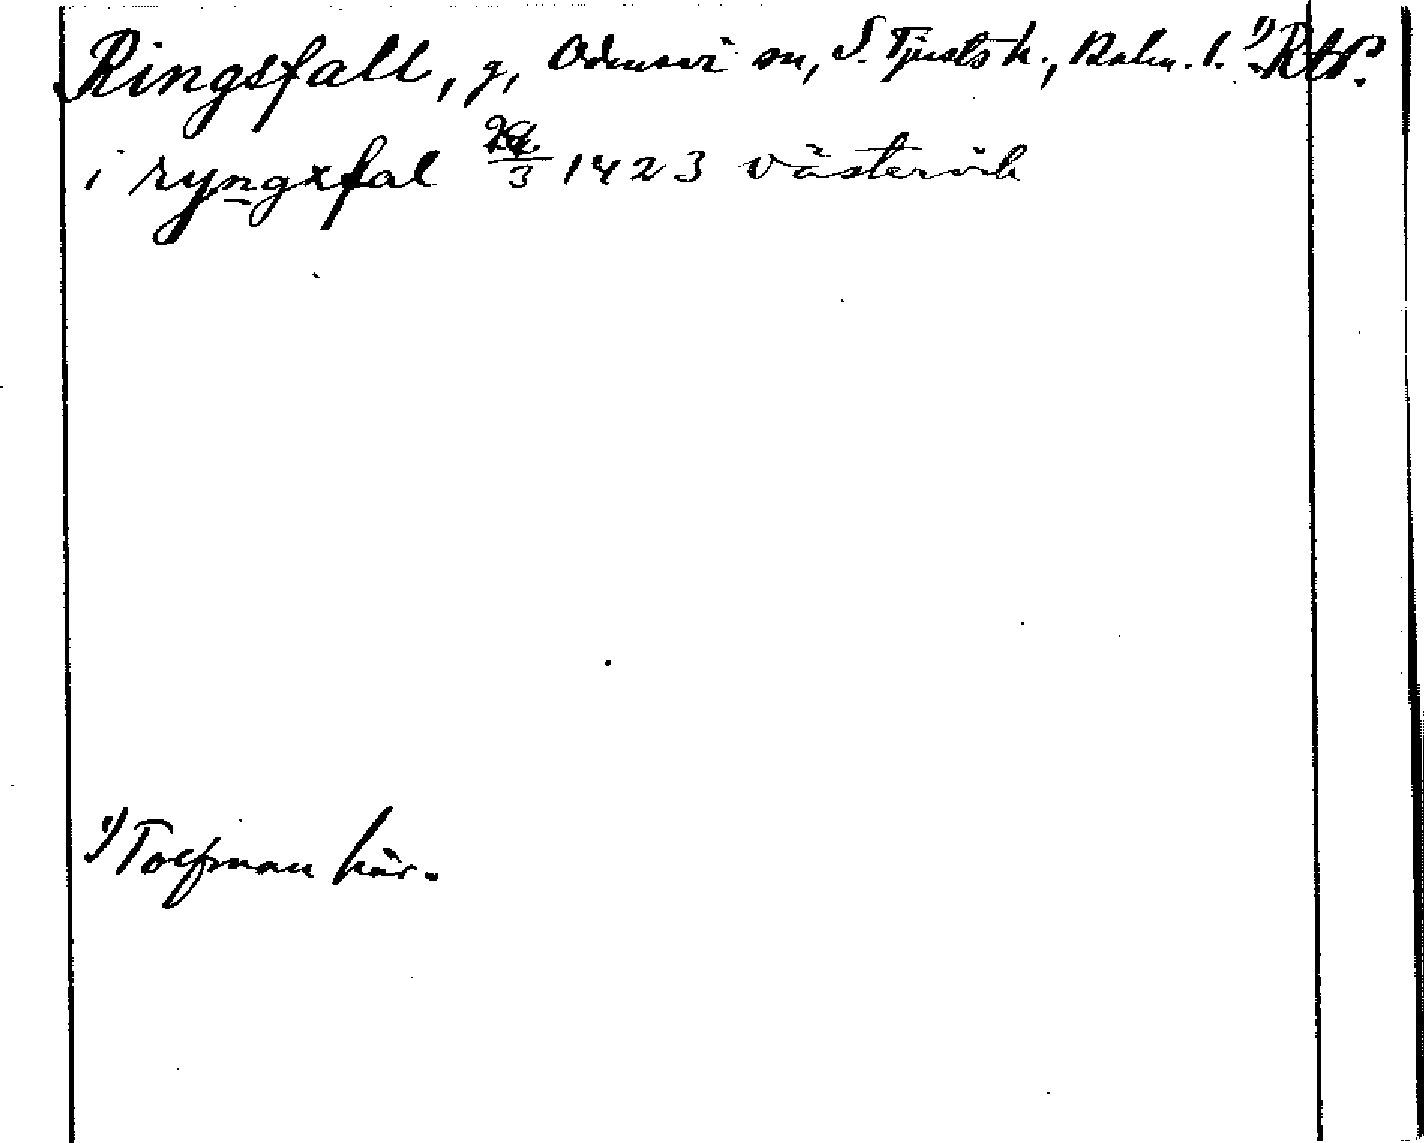 Ringsfall, g, Odensvi sn, S. Tjusts h., Kalm. l. 1) RAP.
i ryngxfal 1423 västervik
1) Tolfman här.